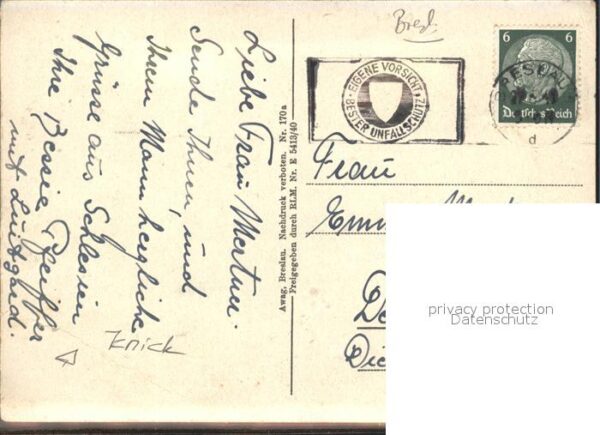 Liebe Frau Mertner.
Sende Ihnen und
Ihrem Mann herzliche
Grüsse aus Schlesien
Ihre Bessie Pfeiffer
mit Luitgard.
Knick
Awag, Breslau. Nachdruck verboten. Nr. 170a
Freigegeben durch RLM. Nr. E 5413/40
Bresl.
EIGENE VORSICHT
BESTER UNFALLSCHUTZ
6 6
Deutsches Reich
BRESLAU
d
Frau
privacy protection
Datenschutz